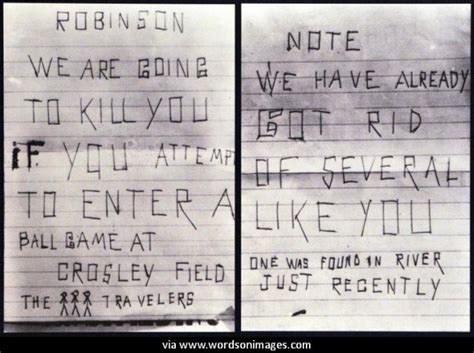 ROBINSON
WE ARE GOING
TO KILL YOU
iF YOU ATTEMP
TO ENTER A
BALL GAME AT
CROSLEY FIELD
THE TRAVELERS
NOTE
WE HAVE ALREADY
GOT RID
OF SEVERAL
LIKE YOU
ONE WAS FOUND IN RIVER
JUST RECENTLY
via www.wordsonimages.com